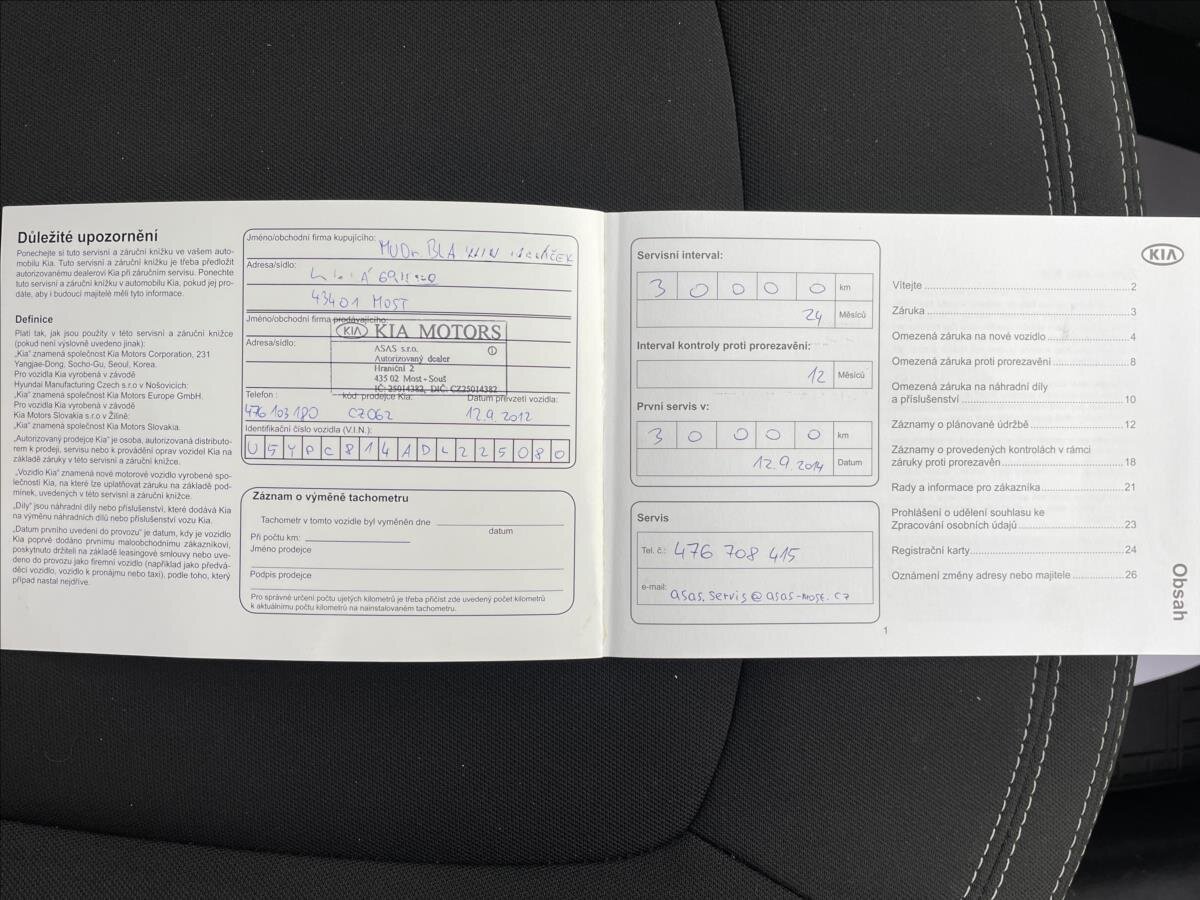 Důležité upozornění
Ponechejte si tuto servisní a záruční knížku ve vašem auto-
mobilu Kia. Tuto servisní a záruční knížku je třeba předložit
autorizovanému dealerovi Kia při záručním servisu. Ponechte
tuto servisní a záruční knížku v automobilu Kia, pokud jej pro-
dáte, aby i budoucí majitelé měli tyto informace.
Definice
Platí tak, jak jsou použity v této servisní a záruční knížce
(pokud není výslovně uvedeno jinak):
„Kia“ znamená společnost Kia Motors Corporation, 231
Yangjae-Dong, Socho-Gu, Seoul, Korea.
Pro vozidla Kia vyrobená v závodě
Hyundai Manufacturing Czech s.r.o v Nošovicích:
„Kia“ znamená společnost Kia Motors Europe GmbH.
Pro vozidla Kia vyrobená v závodě
Kia Motors Slovakia s.r.o v Žilině:
„Kia“ znamená společnost Kia Motors Slovakia.
„Autorizovaný prodejce Kia“ je osoba, autorizovaná distributo-
rem k prodeji, servisu nebo k provádění oprav vozidel Kia na
základě záruky v této servisní a záruční knížce.
„Vozidlo Kia“ znamená nové motorové vozidlo vyrobené spo-
lečností Kia, na které lze uplatňovat záruku na základě pod-
mínek, uvedených v této servisní a záruční knížce.
„Díly“ jsou náhradní díly nebo příslušenství, které dodává Kia
na výměnu náhradních dílů nebo příslušenství vozu Kia.
„Datum prvního uvedení do provozu“ je datum, kdy je vozidlo
Kia poprvé dodáno prvnímu maloobchodnímu zákazníkovi,
poskytnuto držiteli na základě leasingové smlouvy nebo uve-
deno do provozu jako firemní vozidlo (například jako předvá-
děcí vozidlo, vozidlo k pronájmu nebo taxi), podle toho, který
případ nastal nejdříve.
Jméno/obchodní firma kupujícího: MUDr.
Adresa/sídlo:
43401 MOST
Jméno/obchodní firma prodávajícího:
KIA KIA MOTORS
Adresa/sídlo:
ASAS s.r.o.
Autorizovaný dealer
Hraniční 2
435 02 Most - Souš
IČ: 25014382, DIČ: CZ25014382
Telefon : kód prodejce Kia: Datum převzetí vozidla:
476 103 180 CZ062 12.9.2012
Identifikační číslo vozidla (V.I.N.):
U5YPC814ADL225080
Záznam o výměně tachometru
Tachometr v tomto vozidle byl vyměněn dne
datum
Při počtu km:
Jméno prodejce
Podpis prodejce
Pro správné určení počtu ujetých kilometrů je třeba přičíst zde uvedený počet kilometrů
k aktuálnímu počtu kilometrů na nainstalovaném tachometru.
Servisní interval:
3 0 0 0 0 km
24 Měsíců
Interval kontroly proti prorezavění:
12 Měsíců
První servis v:
3 0 0 0 0 km
12.9.2014 Datum
Servis
Tel. č.: 476 708 415
e-mail: asas.servis@asas-most.cz
KIA
Vítejte 2
Záruka 3
Omezená záruka na nové vozidlo 4
Omezená záruka proti prorezavění 8
Omezená záruka na náhradní díly
a příslušenství 10
Záznamy o plánované údržbě 12
Záznamy o provedených kontrolách v rámci
záruky proti prorezavěn 18
Rady a informace pro zákazníka 21
Prohlášení o udělení souhlasu ke
Zpracování osobních údajů 23
Registrační karty 24
Oznámení změny adresy nebo majitele 26
Obsah
1